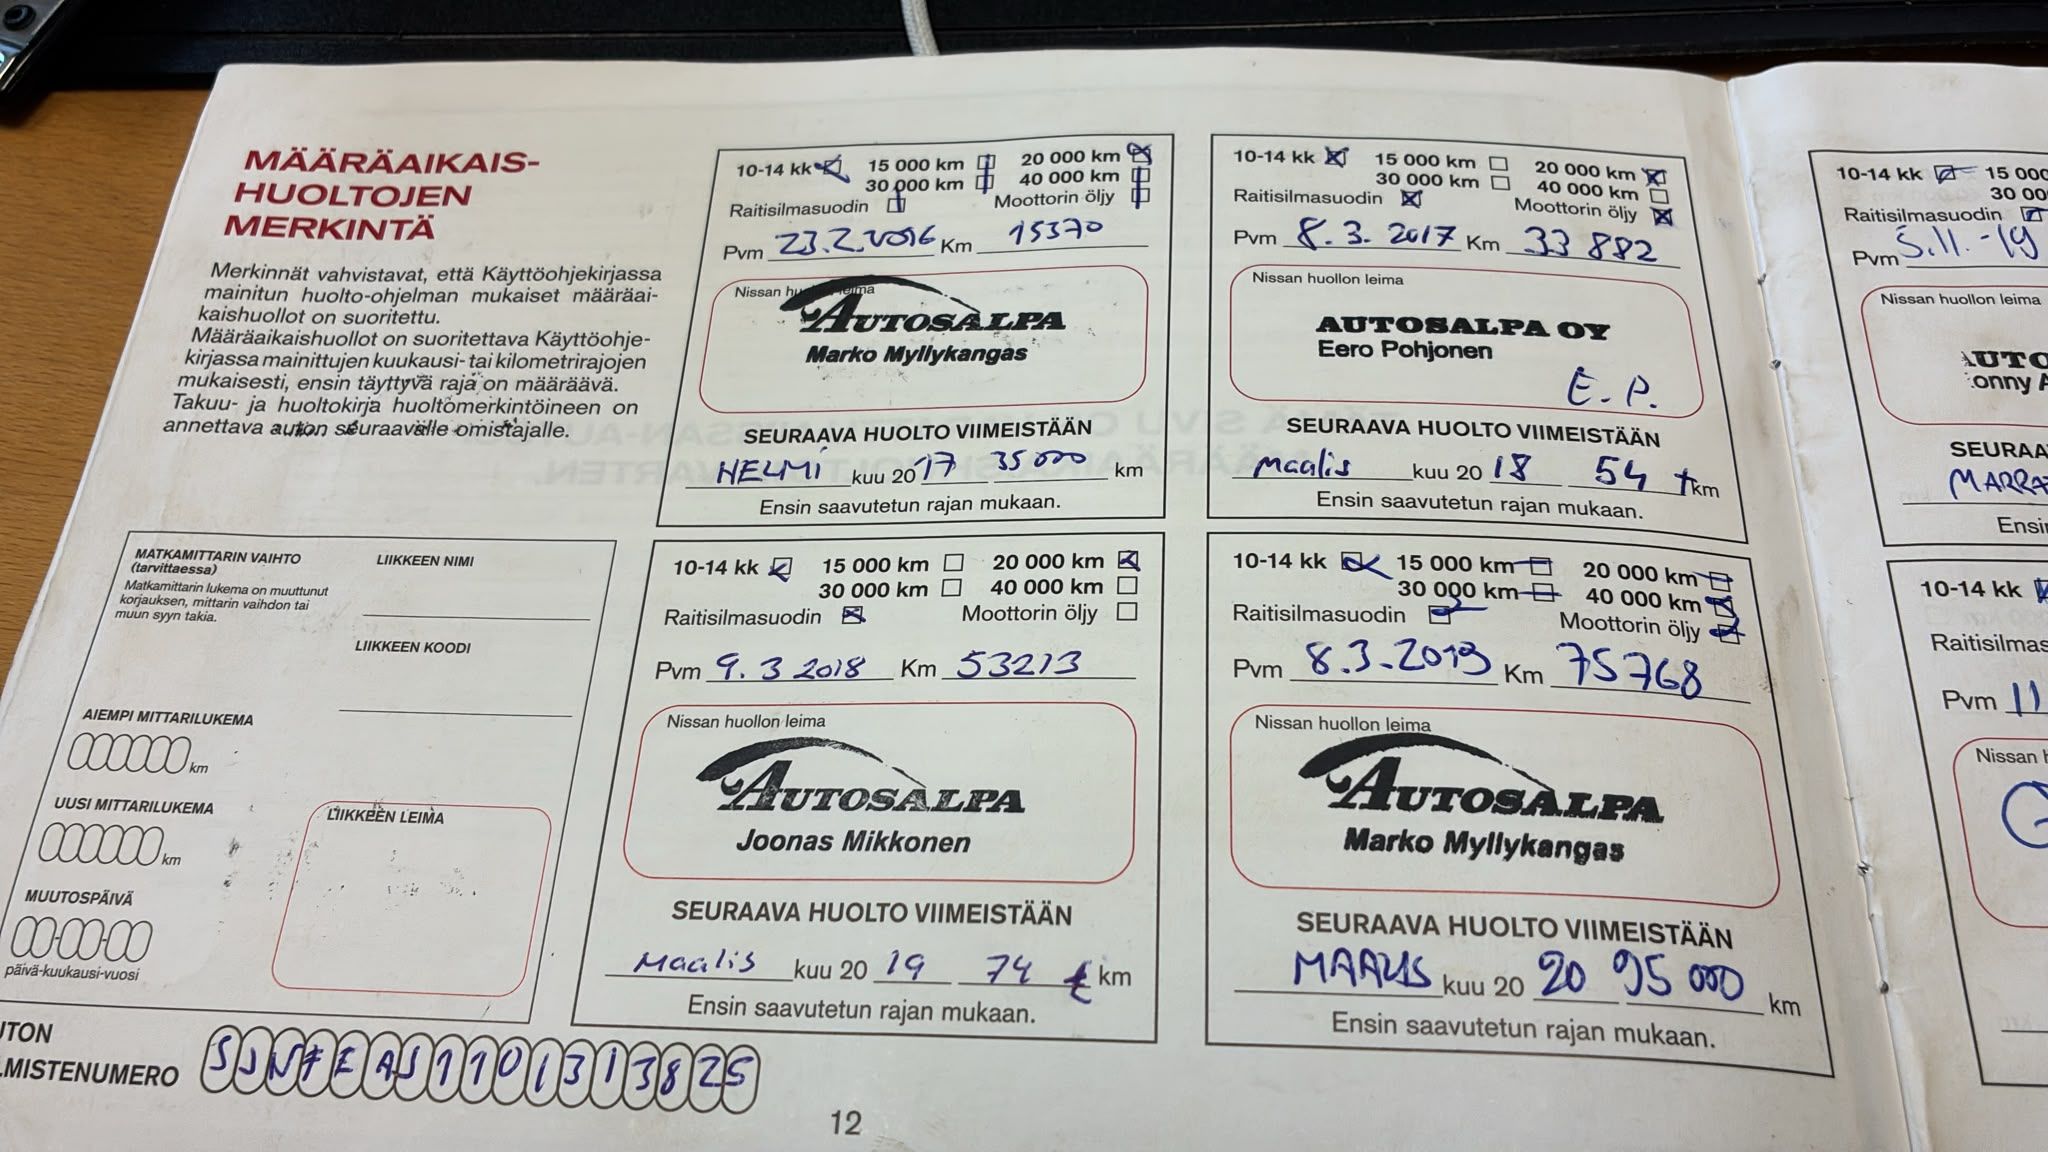 MÄÄRÄAIKAIS-
HUOLTOJEN
MERKINTÄ
Merkinnät vahvistavat, että Käyttöohjekirjassa
mainitun huolto-ohjelman mukaiset määräai-
kaishuollot on suoritettu.
Määräaikaishuollot on suoritettava Käyttöohje-
kirjassa mainittujen kuukausi- tai kilometrirajojen
mukaisesti, ensin täyttyvä raja on määräävä.
Takuu- ja huoltokirja huoltomerkintöineen on
annettava auton seuraavalle omistajalle.
10-14 kk 15 000 km 20 000 km
30 000 km 40 000 km
Raitisilmasuodin Moottorin öljy
Pvm 23.2.2016 Km 15370
Nissan huollon leima
AUTOSALPA
Marko Myllykangas
SEURAAVA HUOLTO VIIMEISTÄÄN
HELMI kuu 20 17 35 000 km
Ensin saavutetun rajan mukaan.
10-14 kk 15 000 km 20 000 km
30 000 km 40 000 km
Raitisilmasuodin Moottorin öljy
Pvm 8.3.2017 Km 33 882
Nissan huollon leima
AUTOSALPA OY
Eero Pohjonen
E.P.
SEURAAVA HUOLTO VIIMEISTÄÄN
Maalis kuu 20 18 54 t km
Ensin saavutetun rajan mukaan.
MATKAMITTARIN VAIHTO
(tarvittaessa)
Matkamittarin lukema on muuttunut
korjauksen, mittarin vaihdon tai
muun syyn takia.
LIIKKEEN NIMI
LIIKKEEN KOODI
AIEMPI MITTARILUKEMA
km
UUSI MITTARILUKEMA
km
MUUTOSPÄIVÄ
päivä-kuukausi-vuosi
LIIKKEEN LEIMA
10-14 kk 15 000 km 20 000 km
30 000 km 40 000 km
Raitisilmasuodin Moottorin öljy
Pvm 9.3 2018 Km 53213
Nissan huollon leima
AUTOSALPA
Joonas Mikkonen
SEURAAVA HUOLTO VIIMEISTÄÄN
Maalis kuu 20 19 74 t km
Ensin saavutetun rajan mukaan.
10-14 kk 15 000 km 20 000 km
30 000 km 40 000 km
Raitisilmasuodin Moottorin öljy
Pvm 8.3.2019 Km 75768
Nissan huollon leima
AUTOSALPA
Marko Myllykangas
SEURAAVA HUOLTO VIIMEISTÄÄN
MAALIS kuu 20 20 95 000 km
Ensin saavutetun rajan mukaan.
UTON
LMISTENUMERO SJNFEAJ11U1313825
12
10-14 kk 15 000
30 00
Raitisilmasuodin
Pvm 5.11.-19
Nissan huollon leima
AUTO
onny A
SEURAA
MARRA
Ensin
10-14 kk
Raitisilmas
Pvm 11
Nissan h